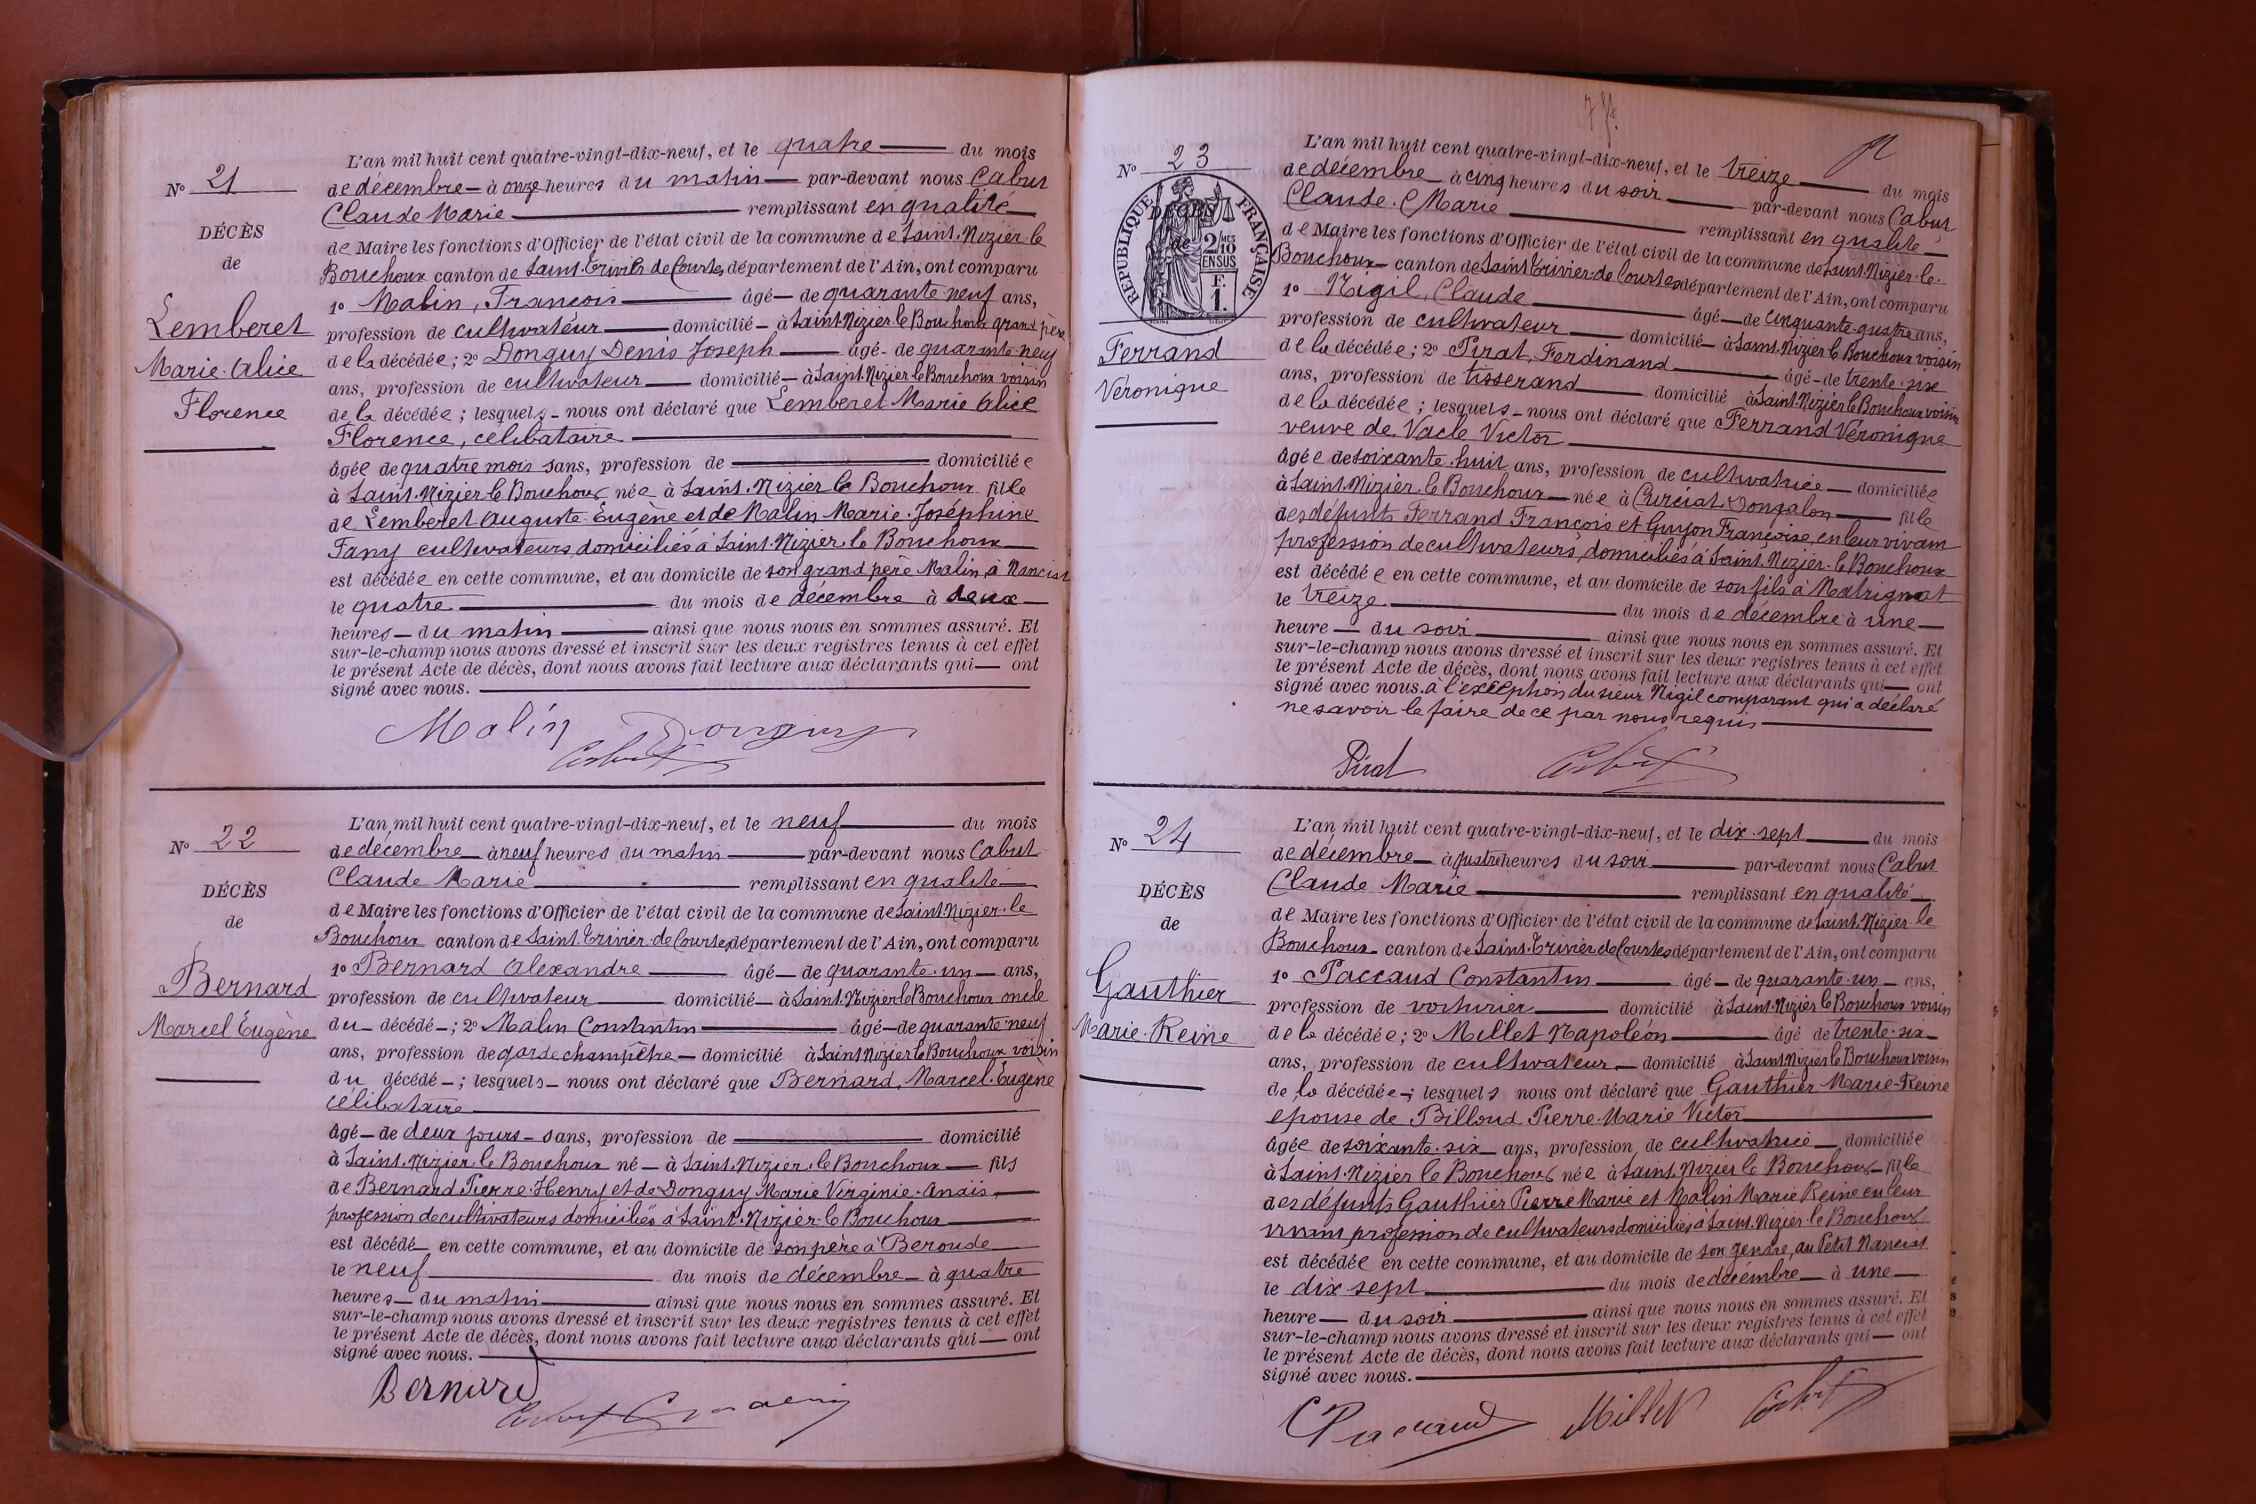 N° 21
DÉCÈS
de
Lemberet
Marie Alice
Florence
L'an mil huit cent quatre-vingt-dix-neuf, et le quatre du mois
de décembre à onze heures du matin par-devant nous Cabut
Claude Marie remplissant en qualité
de Maire les fonctions d'Officier de l'état civil de la commune de Saint-Nizier-le
Bouchoux canton de Saint-Trivier de Courtes, département de l'Ain, ont comparu
1° Malin, François âgé de quarante neuf ans,
profession de cultivateur domicilié à Saint-Nizier le Bouchoux grand père
de la décédée; 2° Donguy Denis Joseph âgé de quarante neuf
ans, profession de cultivateur domicilié à Saint-Nizier le Bouchoux voisin
de la décédée; lesquels nous ont déclaré que Lemberet Marie Alice
Florence, célibataire
âgée de quatre mois sans, profession de domiciliée
à Saint-Nizier le Bouchoux née à Saint-Nizier le Bouchoux fille
de Lemberet Auguste Eugène et de Malin Marie-Joséphine
Fany cultivateurs domiciliés à Saint-Nizier-le Bouchoux
est décédée en cette commune, et au domicile de son grand père Malin, à Nanciat
le quatre du mois de décembre à deux
heures du matin ainsi que nous nous en sommes assuré. Et
sur-le-champ nous avons dressé et inscrit sur les deux registres tenus à cet effet
le présent Acte de décès, dont nous avons fait lecture aux déclarants qui ont
signé avec nous.
Malin Donguy
Cabut
N° 22
DÉCÈS
de
Bernard
Marcel Eugène
L'an mil huit cent quatre-vingt-dix-neuf, et le neuf du mois
de décembre à neuf heures du matin par-devant nous Cabut
Claude Marie remplissant en qualité
de Maire les fonctions d'Officier de l'état civil de la commune de Saint-Nizier-le
Bouchoux canton de Saint-Trivier-de Courtes, département de l'Ain, ont comparu
1° Bernard Alexandre âgé de quarante-un ans,
profession de cultivateur domicilié à Saint-Nizier le Bouchoux oncle
du décédé; 2° Malin Constantin âgé de quarante-neuf
ans, profession de garde champêtre domicilié à Saint Nizier le Bouchoux voisin
du décédé; lesquels nous ont déclaré que Bernard, Marcel-Eugène
célibataire
âgé de deux jours sans, profession de domicilié
à Saint-Nizier le Bouchoux né à Saint-Nizier-le Bouchoux fils
de Bernard Pierre-Henry et de Donguy Marie Virginie-Anaïs,
profession de cultivateurs domiciliés à Saint-Nizier-le Bouchoux
est décédé en cette commune, et au domicile de son père à Beroude
le neuf du mois de décembre à quatre
heures du matin ainsi que nous nous en sommes assuré. Et
sur-le-champ nous avons dressé et inscrit sur les deux registres tenus à cet effet
le présent Acte de décès, dont nous avons fait lecture aux déclarants qui ont
signé avec nous.
Bernard
Cabut
N° 23
DÉCÈS
de
RÉPUBLIQUE FRANÇAISE
2/10 MES
EN SUS
F.
1.
Ferrand
Véronique
L'an mil huit cent quatre-vingt-dix-neuf, et le treize du mois
de décembre à cinq heures du soir par-devant nous Cabut
Claude-Marie remplissant en qualité
de Maire les fonctions d'Officier de l'état civil de la commune de Saint-Nizier-le-
Bouchoux canton de Saint-Trivier-de Courtes département de l'Ain, ont comparu
1° Nigil, Claude âgé de cinquante-quatre ans,
profession de cultivateur domicilié à Saint-Nizier le Bouchoux voisin
de la décédée; 2° Pirat, Ferdinand âgé de trente-six
ans, profession de tisserand domicilié à Saint-Nizier le Bouchoux voisin
de la décédée; lesquels nous ont déclaré que Ferrand Véronique
veuve de Vacle Victor
âgée de soixante-huit ans, profession de cultivatrice domiciliée
à Saint-Nizier le Bouchoux née à Curciat-Dongalon fille
des défunts Ferrand François et Guyon Françoise, en leur vivant
profession de cultivateurs, domiciliés à Saint-Nizier-le Bouchoux
est décédée en cette commune, et au domicile de son fils à Matrignat
le treize du mois de décembre à une
heure du soir ainsi que nous nous en sommes assuré. Et
sur-le-champ nous avons dressé et inscrit sur les deux registres tenus à cet effet
le présent Acte de décès, dont nous avons fait lecture aux déclarants qui ont
signé avec nous. à l'exception du sieur Nigil comparant qui a déclaré
ne savoir le faire de ce par nous requis
Pirat Cabut
N° 24
DÉCÈS
de
Gauthier
Marie-Reine
L'an mil huit cent quatre-vingt-dix-neuf, et le dix-sept du mois
de décembre à quatre heures du soir par-devant nous Cabut
Claude Marie remplissant en qualité
de Maire les fonctions d'Officier de l'état civil de la commune de Saint-Nizier-le
Bouchoux canton de Saint-Trivier de Courtes département de l'Ain, ont comparu
1° Paccaud Constantin âgé de quarante-un ans,
profession de voiturier domicilié à Saint-Nizier le Bouchoux voisin
de la décédée; 2° Millet Napoléon âgé de trente-six
ans, profession de cultivateur domicilié à Saint-Nizier le Bouchoux voisin
de la décédée; lesquels nous ont déclaré que Gauthier Marie-Reine
epouse de Billoud Pierre-Marie Victor
âgée de soixante-six ans, profession de cultivatrice domiciliée
à Saint-Nizier le Bouchoux née à Saint-Nizier le Bouchoux fille
des défunts Gauthier Pierre Marie et Malin Marie Reine en leur
vivant profession de cultivateurs domiciliés à Saint-Nizier-le Bouchoux
est décédée en cette commune, et au domicile de son gendre, au Petit Nanciat
le dix-sept du mois de décembre à une
heure du soir ainsi que nous nous en sommes assuré. Et
sur-le-champ nous avons dressé et inscrit sur les deux registres tenus à cet effet
le présent Acte de décès, dont nous avons fait lecture aux déclarants qui ont
signé avec nous.
CPaccaud Millet Cabut